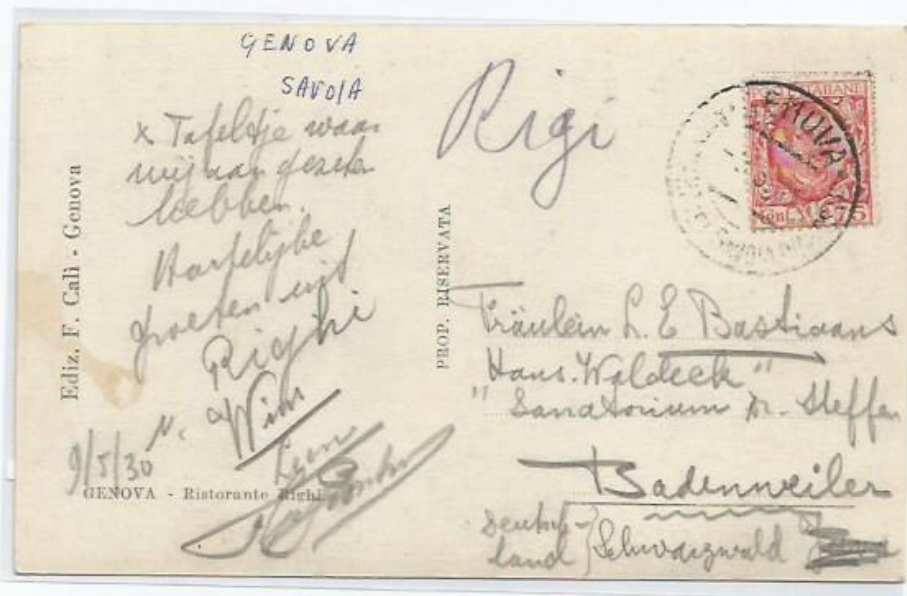 GENOVA
SAVOIA
x Tafeltje waar
wij aan gezeten
hebben.
Hartelijke
groeten uit
Righi
Wim
Leon
9/5/30
Ediz. F. Calì - Genova
GENOVA - Ristorante Righi
PROP. RISERVATA
Rigi
GENOVA
75
Fräulein L. E Bastiaans
"Haus. Waldeck"
"Sanatorium Dr. Steffen
Badenweiler
Deutsch-
land Schwarzwald